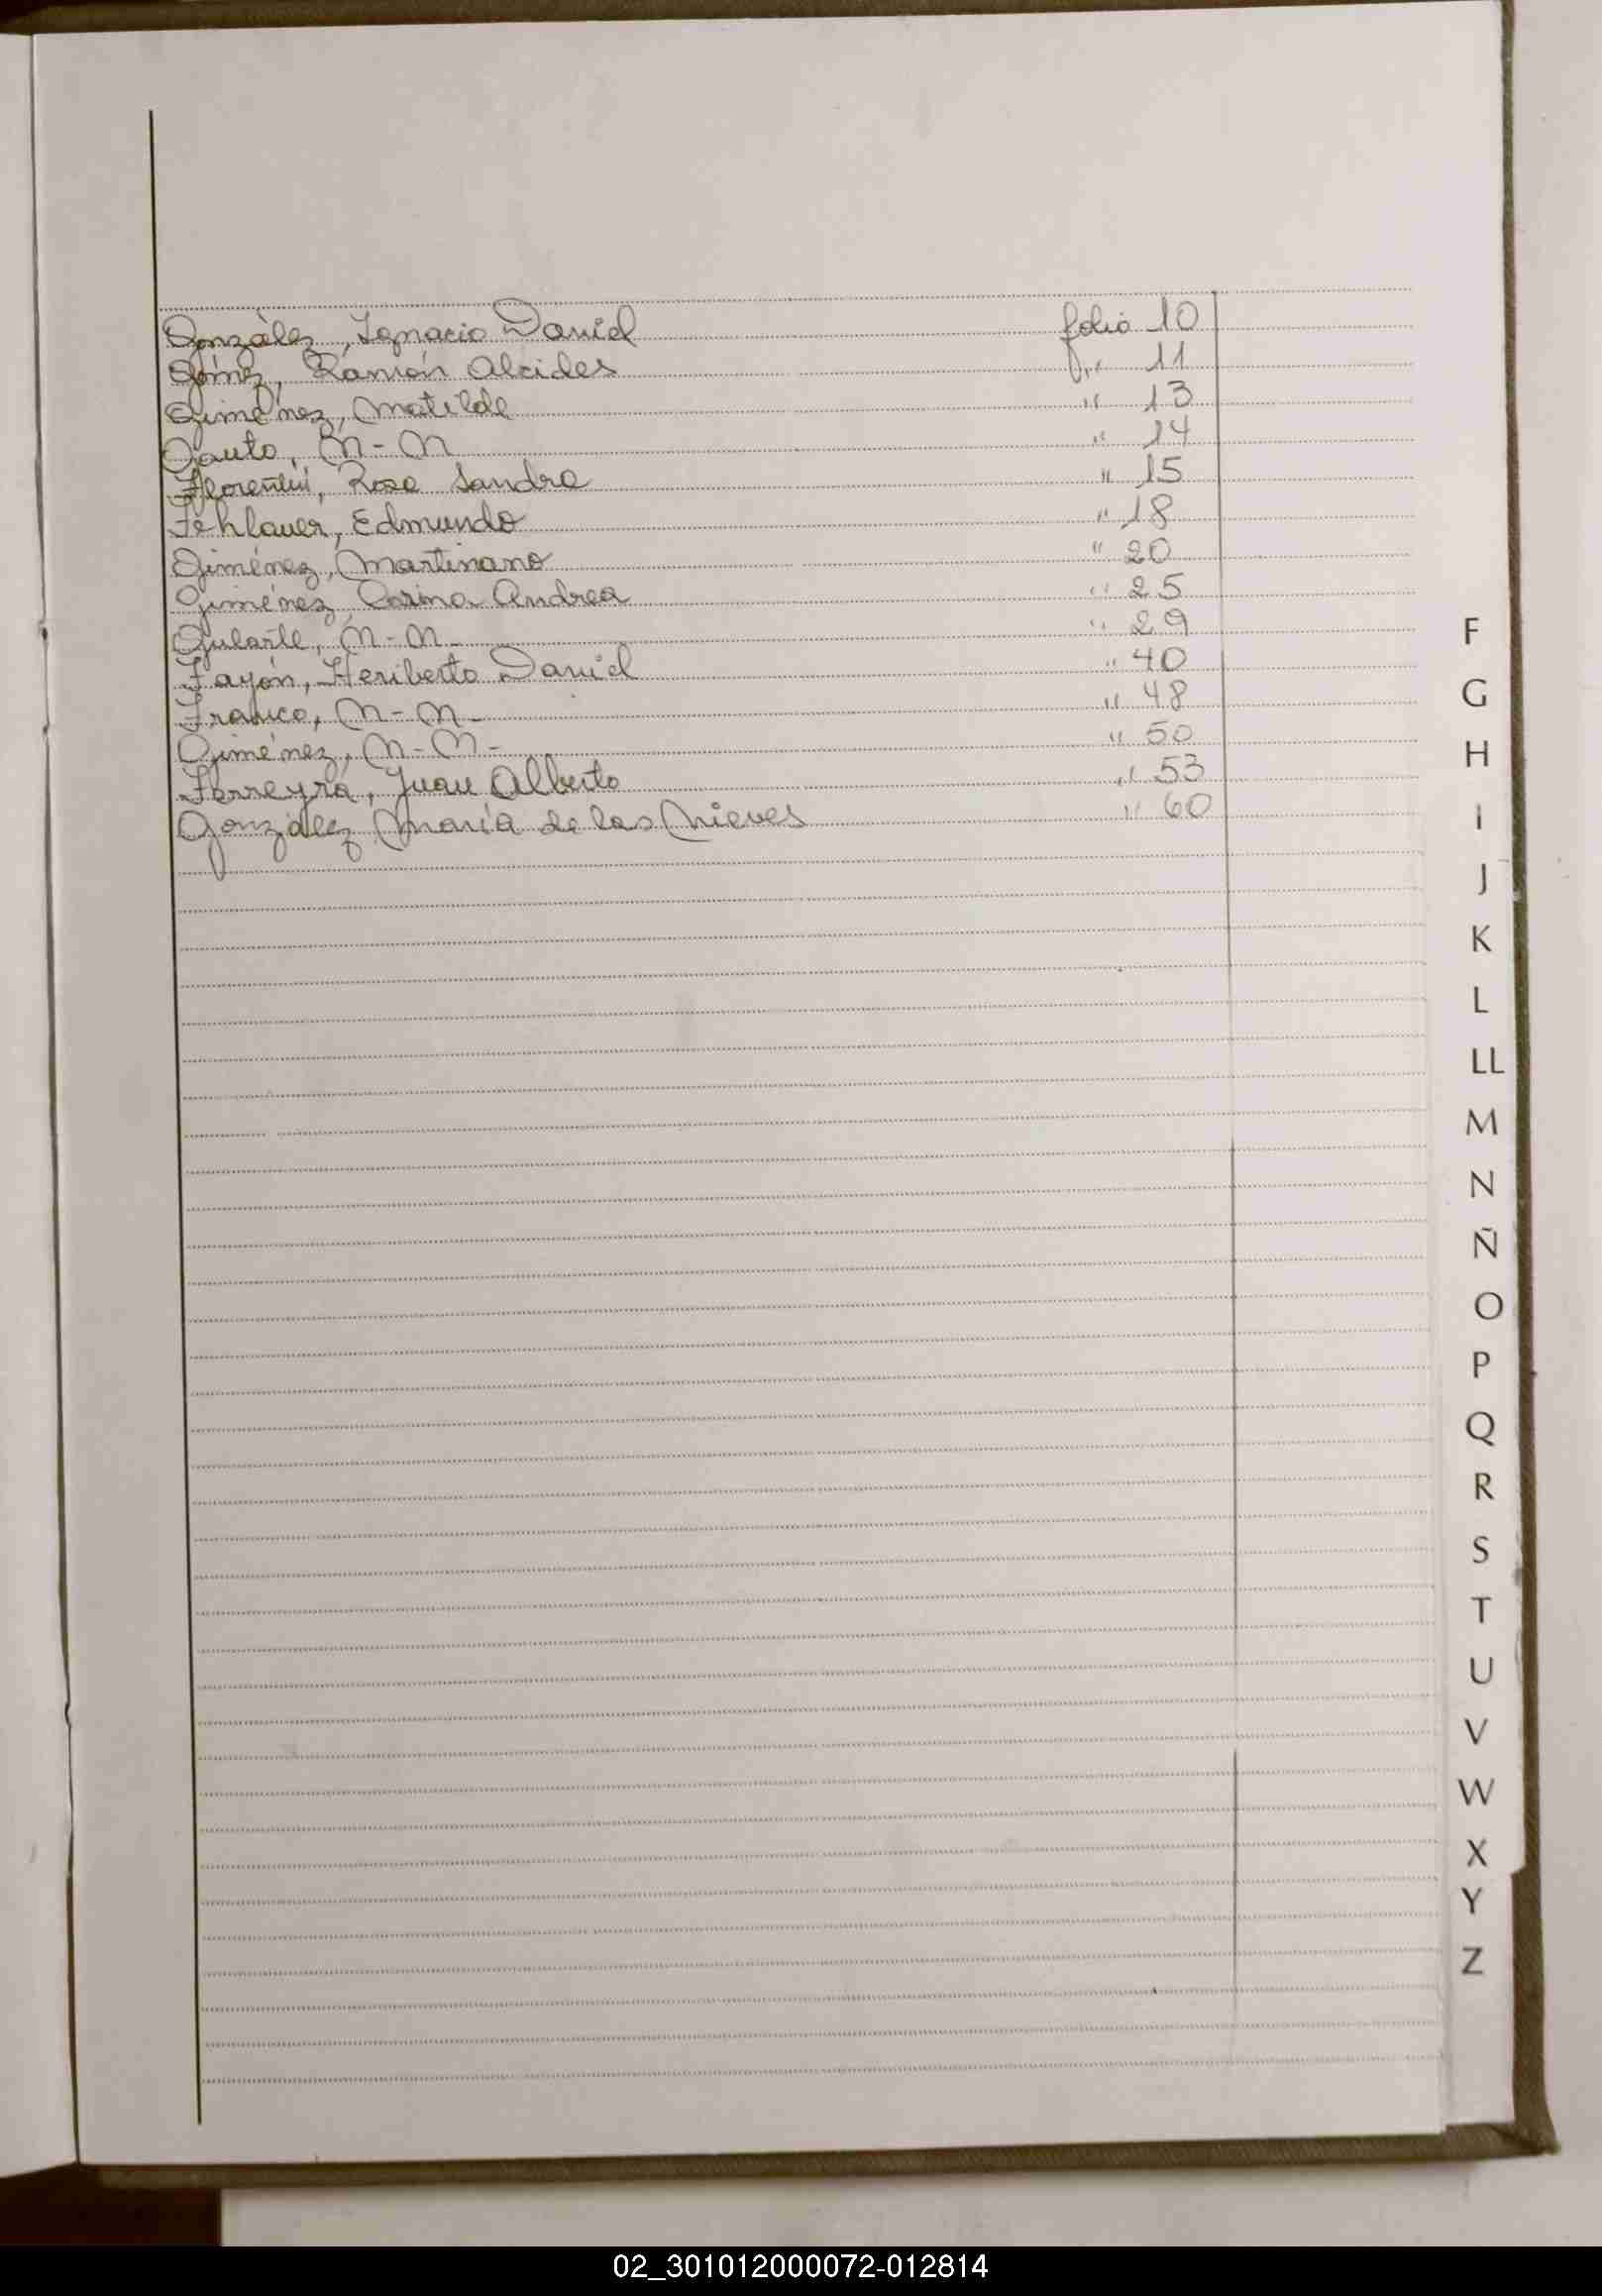 González, Ignacio Daniel folio 10
Gómez, Ramón Alcides " 11
Giménez, Matilde " 13
Gauto, N-N " 14
Florentín, Rosa Sandra " 15
Fehlauer, Edmundo " 18
Giménez, Martiniano " 20
Giménez Carina Andrea " 25
Gularte, N-N- " 29
Fayón, Heriberto Daniel " 40
Franco, N-N- " 48
Giménez, N-N- " 50
Ferreyra, Juan Alberto " 53
González María de las Nieves " 60
F
G
H
I
J
K
L
LL
M
N
Ñ
O
P
Q
R
S
T
U
V
W
X
Y
Z
02_301012000072-012814